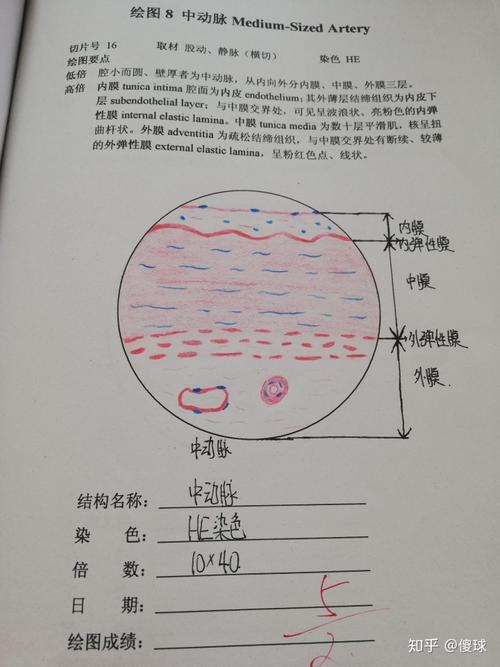 绘图 8 中动脉 Medium-Sized Artery
切片号 16 取材 股动、静脉（横切） 染色 HE
绘图要点
低倍 腔小而圆、壁厚者为中动脉，从内向外分内膜、中膜、外膜三层。
高倍 内膜 tunica intima 腔面为内皮 endothelium；其外薄层结缔组织为内皮下
层 subendothelial layer；与中膜交界处，可见呈波浪状、亮粉色的内弹
性膜 internal elastic lamina。中膜 tunica media 为数十层平滑肌，核呈扭
曲杆状。外膜 adventitia 为疏松结缔组织，与中膜交界处有断续、较薄
的外弹性膜 external elastic lamina，呈粉红色点、线状。
内膜
内弹性膜
中膜
外弹性膜
外膜.
中动脉
结构名称： 中动脉
染 色： HE染色
倍 数： 10×40
日 期：
绘图成绩：
5
2
知乎 @傻球